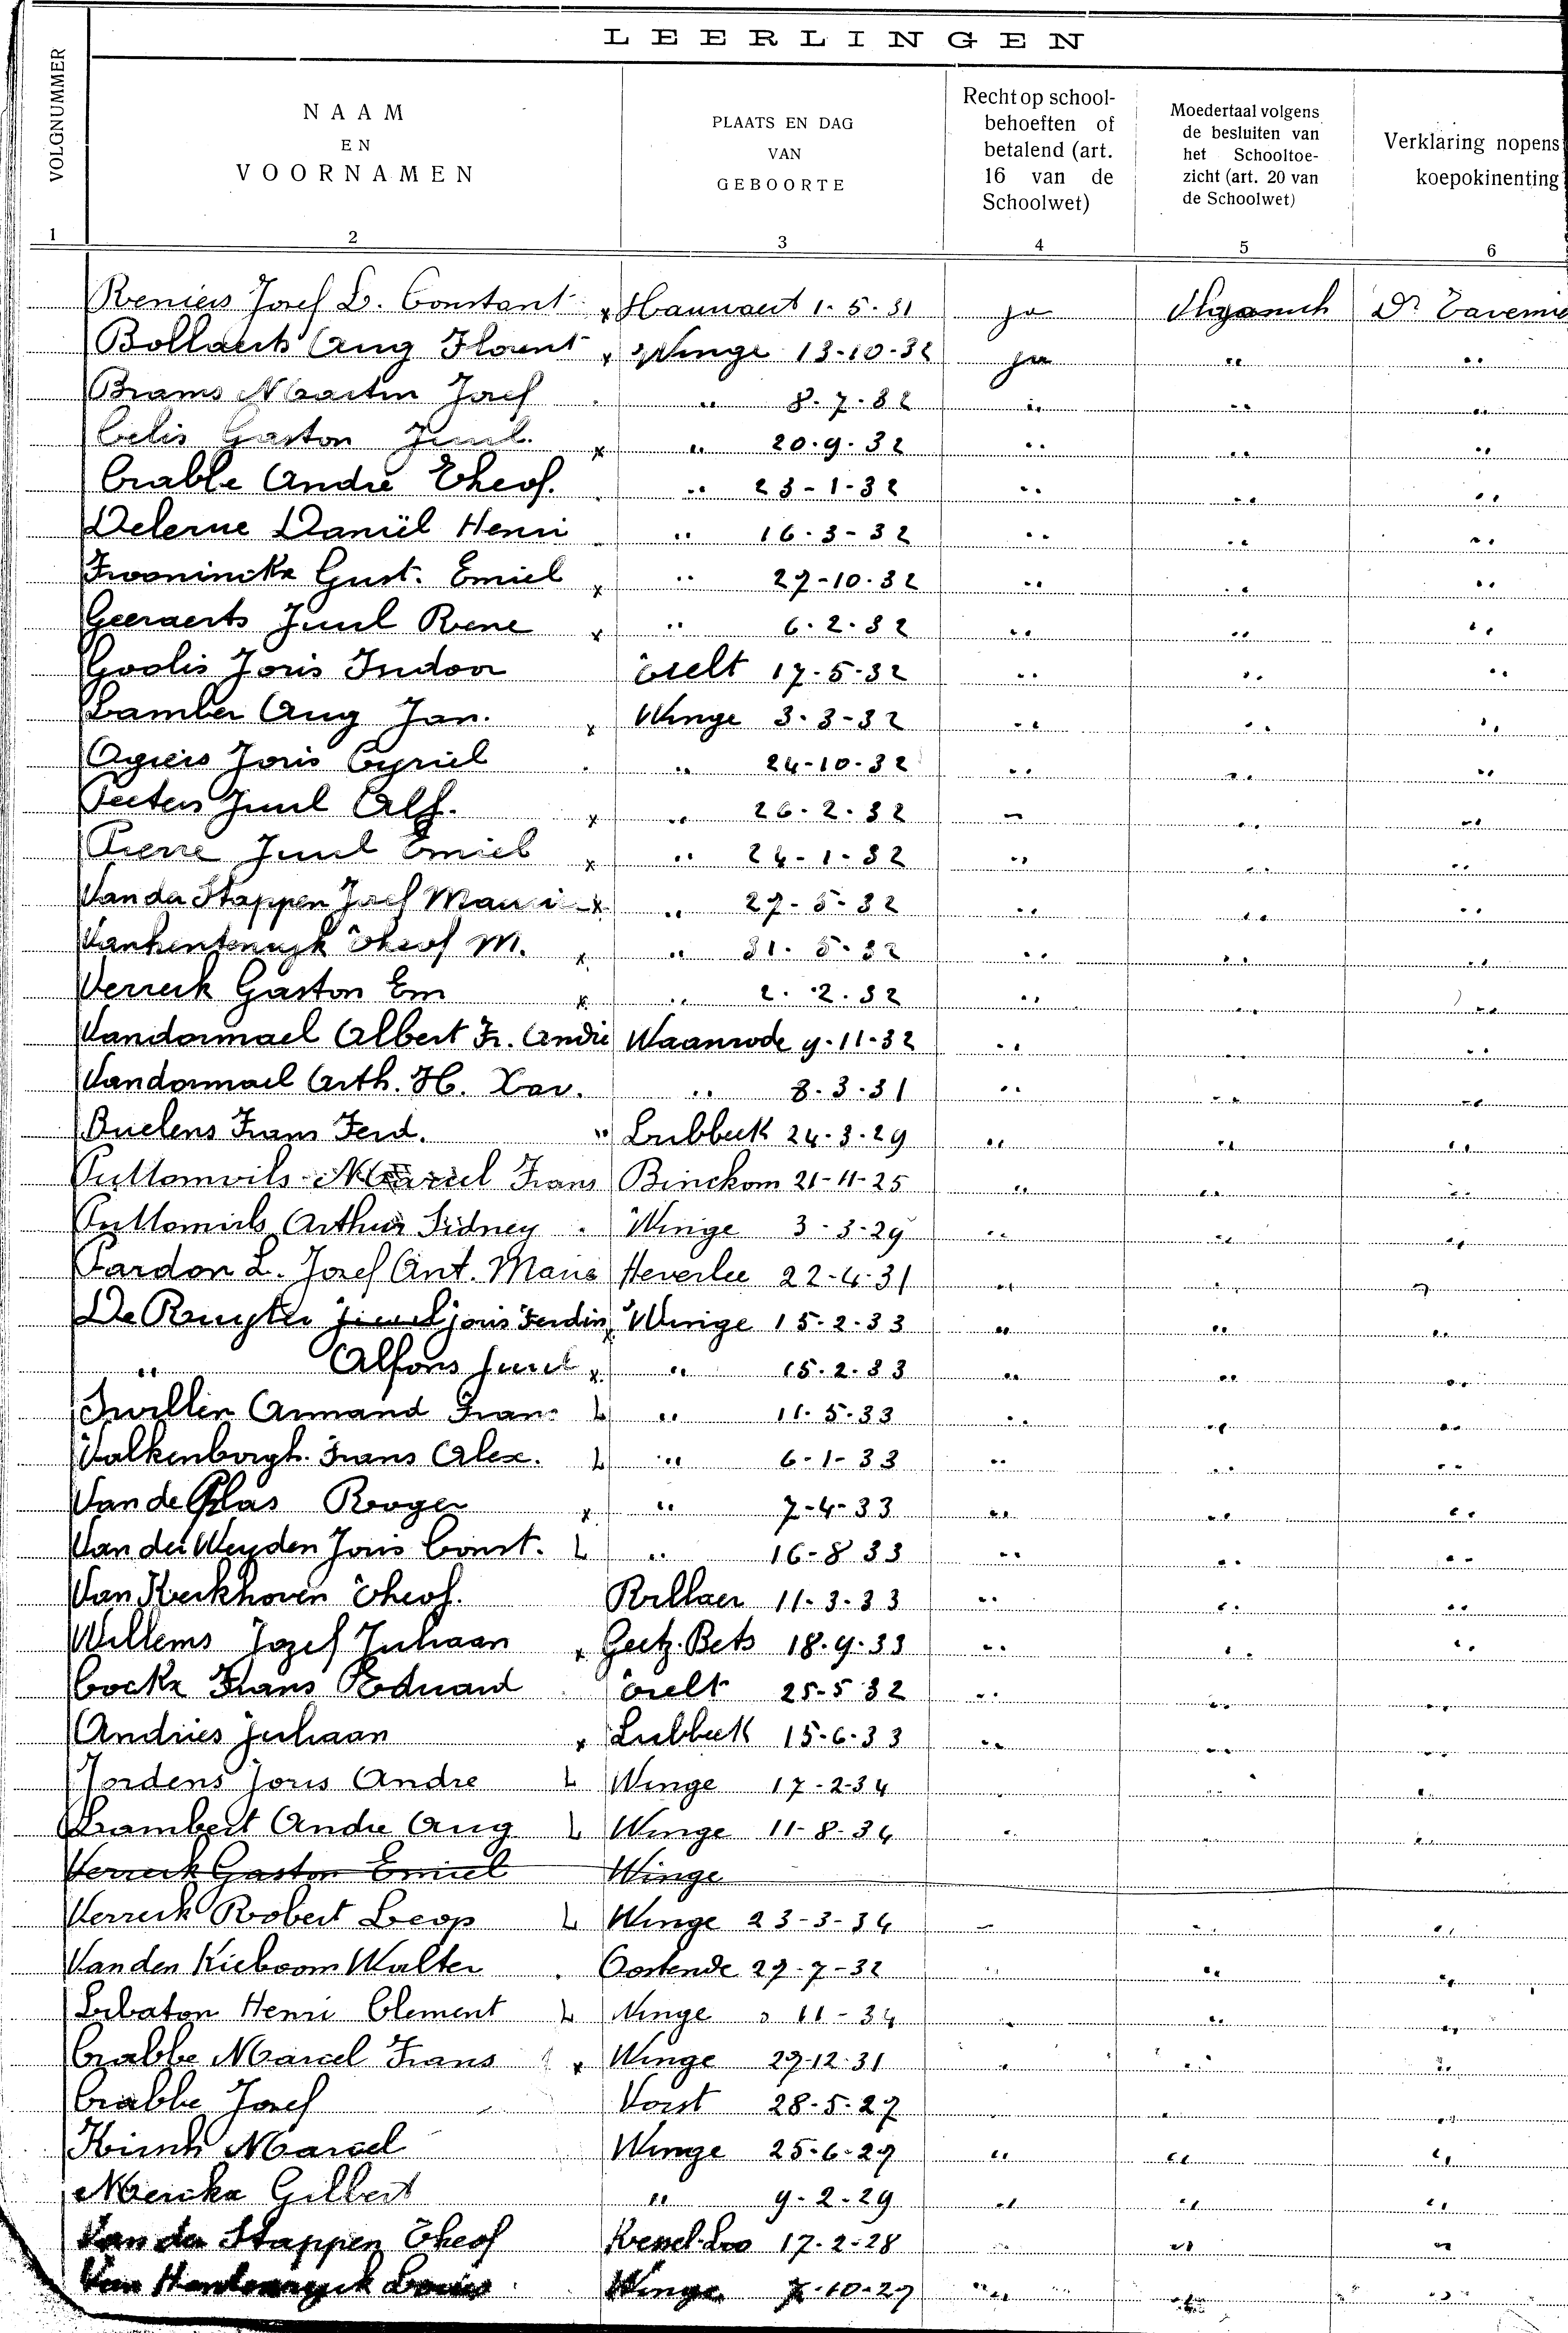 LEERLINGEN
VOLGNUMMER
NAAM
EN
VOORNAMEN
PLAATS EN DAG
VAN
GEBOORTE
Recht op school-
behoeften of
betalend (art.
16 van de
Schoolwet)
Moedertaal volgens
de besluiten van
het Schooltoe-
zicht (art. 20 van
de Schoolwet)
Verklaring nopens
koepokinenting
1 2 3 4 5 6
Reniers Josef L. Constant x Hauwaert 1-5-31 ja Dr Tavernie
Bollaerts Aug Florent x Winge 13-10-32 ja " "
Brams Martin Josef " 8-7-32 " " "
Celis Gaston Juul. x " 20-9-32 " " "
Crabbe André Theof. " 23-1-32 " " "
Delerue Daniël Henri " 16-3-32 " " "
Frooninckx Gust. Emiel x " 27-10-32 " " "
Geeraerts Juul Rene x " 6-2-32 " " "
Goolis Joris Isidoor Tielt 17-5-32 " " "
Lamber Aug Jan. x Winge 3-3-32 " " "
Ogiers Joris Cyriel " 24-10-32 " " "
Peeters Juul Alf. x " 26-2-32 " " "
Pierre Juul Emiel x " 24-1-32 " " "
Van der Stappen Josef Mauri x " 27-5-32 " " "
Vanhentenryk Theof M. x " 31-5-32 " " "
Verreck Gaston Em x " 2-2-32 " " "
Vandormael Albert Fr. André Waanrode 9-11-32 " " "
Vandormael Arth. H. Xav. " 8-3-31 " " "
Buelens Frans Ferd. " Lubbeek 24-3-29 " " "
Puttemvils Marcel Frans Binckom 21-11-25 " " "
Puttemvils Arthur Sidney Winge 3-3-29 " " "
Pardon L. Josef Ant. Marie Heverlee 22-4-31 " " "
De Ruyter Juul Joris Ferdin x Winge 15-2-33 " " "
" Alfons Juul x " 15-2-33 " " "
Swillen Armand Frans L " 11-5-33 " " "
Valkenborgh Frans Alex. L " 6-1-33 " " "
Van de Plas Roger x " 7-4-33 " " "
Van der Weyden Joris Const. L " 16-8 33 " " "
Van Kerkhoven Theof. Rillaer 11-3-33 " " "
Willems Jozef Juliaan x Geetz-Bets 18-9-33 " " "
Cockx Frans Eduard Tielt 25-5 32 " " "
Andries Juliaan x Lubbeek 15-6-33 " " "
Jordens Joris Andre L Winge 17-2-34 " " "
Lambert Andre Aug L Winge 11-8-34 " " "
Verreck Gaston Emiel Winge
Verreck Robert Leop L Winge 23-3-34 " " "
Van den Kieboom Walter Oostende 27-7-32 " " "
Libaton Henri Clement L Winge 11-34 " " "
Crabbe Marcel Frans x Winge 27-12-31 " " "
Crabbe Josef Vorst 28-5-27 " " "
Marcel Winge 25-6-27 " " "
Merckx Gilbert " 9-2-29 " " "
Van der Stappen Theof Kessel-Loo 17-2-28 " " "
Van Hentenryck Louis Winge 7-10-27 " " "